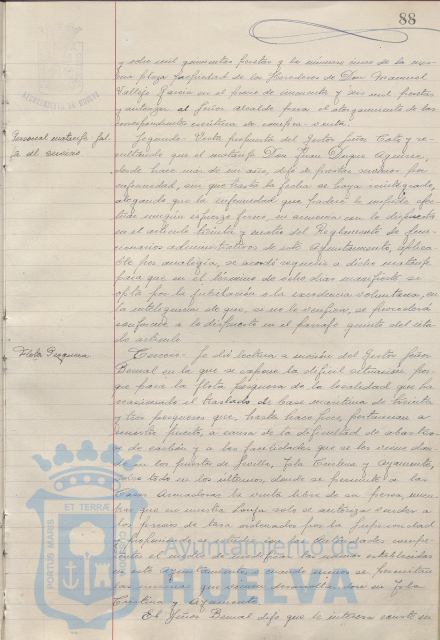 88
y ocho mil quinientas pesetas y la número once de la mis-
ma plaza propiedad de los Herederos de Don Manuel
Vallejo García en el precio de cincuenta y seis mil pesetas
y autorizar al Señor Alcalde para el otorgamiento de las
correspondientes escrituras de compra-venta.
Personal matarife fal-
ta de servicio
Segundo. Vista propuesta del Gestor Señor Coto y re-
sultando que el matarife Don Juan Duque Aguirre,
desde hace más de un año, dejó de prestar servicios por
enfermedad, sin que hasta la fecha se haya reintegrado,
alegando que la enfermedad que padece le impide efec-
tuar ningún esfuerzo físico, en armonía con lo dispuesto
en el artículo treinta y cuatro del Reglamento de fun-
cionarios administrativos de este Ayuntamiento, aplica-
ble por analogía, se acordó requerir a dicho matarife
para que en el término de ocho días manifieste si
opta por la jubilación o la excedencia voluntaria, en
la inteligencia de que, si no lo verifica, se procederá
conforme a lo dispuesto en el párrafo quinto del cita-
do artículo.
Flota Pesquera
Tercero. Se dió lectura a moción del Gestor Señor
Bernal en la que se expone la difícil situación por-
que pasa la flota pesquera de la localidad que ha
ocasionado el traslado de base marítima de treinta
y tres pesqueros que, hasta hace poco, pertenecían a
nuestro puerto, a causa de la dificultad de abastecer-
se de carbón y a las facilidades que se les vienen dan-
do en los puertos de Sevilla, Isla Cristina y Ayamonte,
sobre todo en los últimos, donde se permite a las
Casas Armadoras la venta libre de su pesca, mien-
tras que en nuestra Lonja solo se autoriza vender a
los precios de tasa ordenados por la Superioridad
y proponiendo se
en este
Isla
Cristina y Ayamonte.
El Señor Bernal dijo que le interesa conste su
AYUNTAMIENTO DE HUELVA
PORTUS MARIS ET TERRAE CUSTODIA
Ayuntamiento de
HUELVA